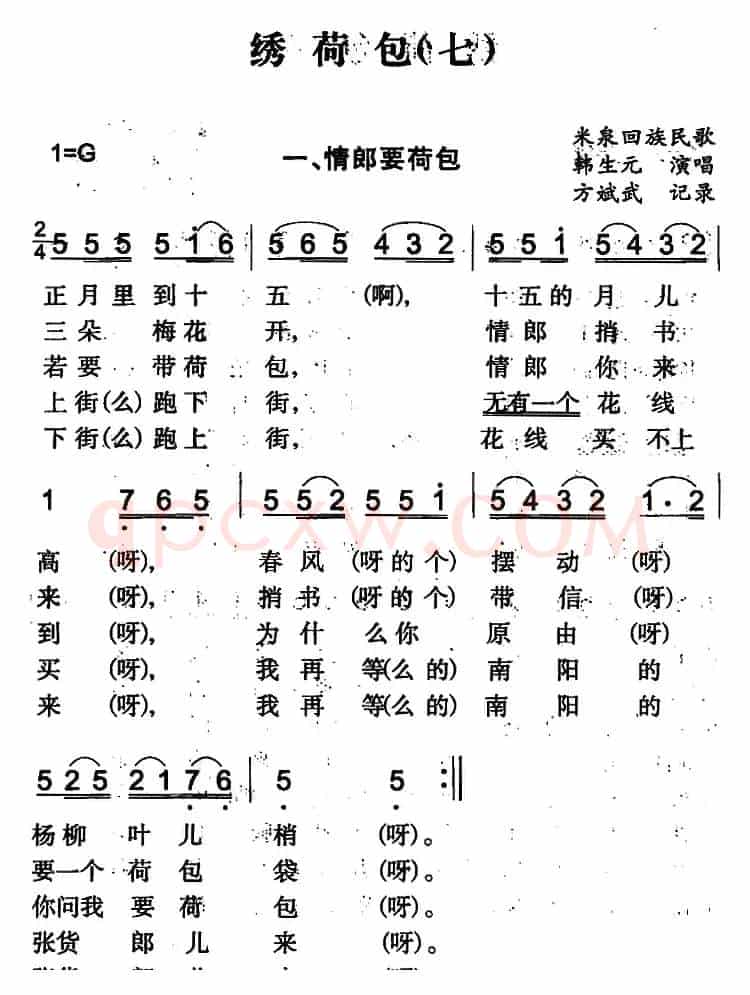 绣荷包(七)
1=G
一、情郎要荷包
米泉回族民歌
韩生元 演唱
方斌武 记录
2/4 5 5 5 5 i 6 | 5 6 5 4 3 2 | 5 5 i 5 4 3 2
正月里到十 五 (啊), 十五的月儿
三朵 梅花 开, 情郎捎书
若要 带荷 包, 情郎你来
上街(么)跑下 街, 无有一个花线
下街(么)跑上 街, 花线买不上
1 7 6 5 | 5 5 2 5 5 i | 5 4 3 2 1· 2
高 (呀), 春风(呀的个)摆动 (呀)
来 (呀), 捎书(呀的个)带信 (呀)
到 (呀), 为什么你 原由 (呀)
买 (呀), 我再等(么的)南阳的
来 (呀), 我再等(么的)南阳的
5 2 5 2 1 7 6 | 5 5 :||
杨柳 叶儿 梢 (呀)。
要一个荷包 袋 (呀)。
你问我要荷 包 (呀)。
张货 郎儿 来 (呀)。
qpcxw.com